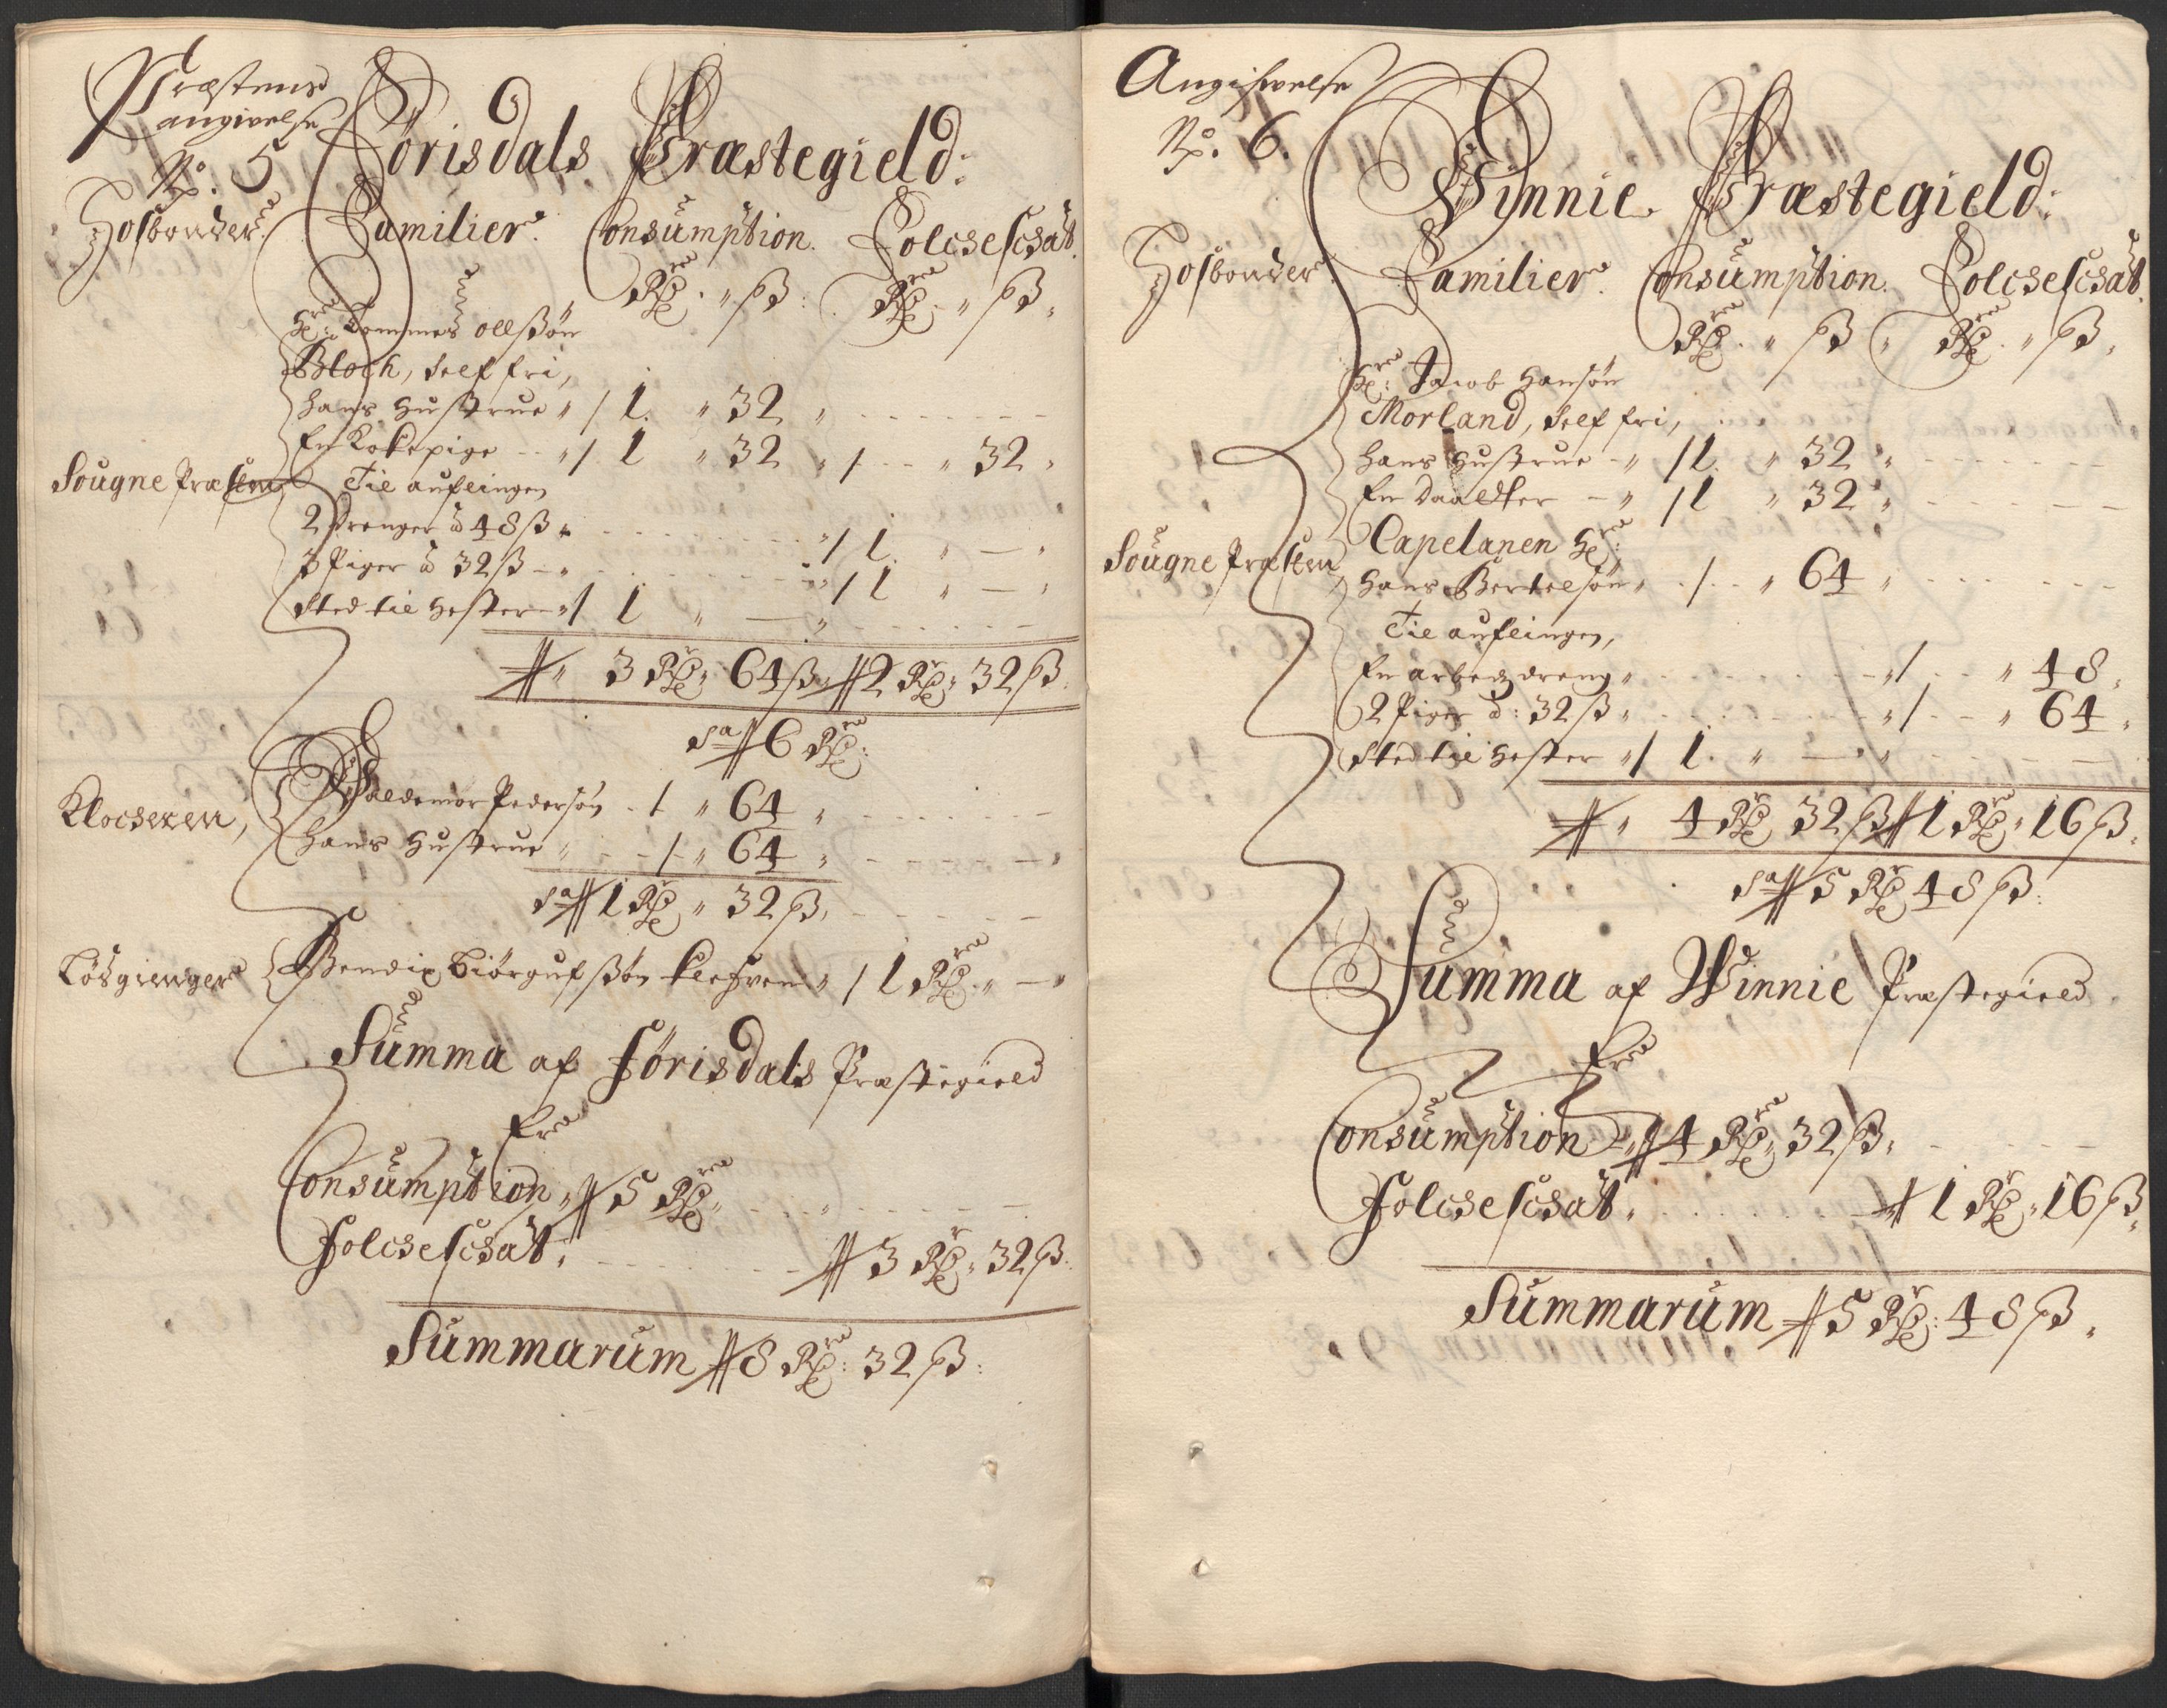 Præstens
angivelse
No. 5
Försdals Præstegield:
Hosbonder. Familier. Consumption. Folckeskat.
Rdr. " ß: Rdr. " ß "
Hr: Tommes Ollssön
Bloch, self fri,
hans Hustrue " / 1. " 32 "
En Kokepige " / 1 " 32 " / " 32 "
Sougne Præsten
Til auflingen
2 Drenger à 48 ß " / 1. " — "
3 Piger à 32 ß — " / 1 " — "
Sted til Hester — " / 1 " — "
// " 3 Rdr: 64 ß " // 2 Rdr: 32 ß.
Sa // 6 Rdr:
Klockeren, Valdemor Pedersön / " 64 "
hans Hustrue " / " 64 "
Sa // 1 Rdr " 32 ß,
Lösgienger Bendix Biörgufssön " / 1 Rdr. " — "
Summa af Förisdals Præstegield
Er
Consumption " // 5 Rdr "
Folckeskat. // 3 Rdr: 32 ß:
Summarum // 8 Rdr: 32 ß:
Angifwelse
No. 6.
Winnie Præstegield:
Hosbonder. Familier. Consumption. Folckeskat.
Rdr. " ß " Rdr. " ß "
Hr: Jacob Hansön
Morland, self fri,
hans Hustrue — " / 1. " 32 "
En Daatter — " / 1 " 32 "
Sougne Præsten
Capelanen Hr:
Hans Bertelsön " / " 64 "
Til auflingen,
En arbeidzdreng " / " 48 "
2 Piger à: 32 ß " / " 64 "
Sted til Hester " / 1. " — "
// " 4 Rdr 32 ß // 1 Rdr " 16 ß.
Sa // 5 Rdr 48 ß:
Summa af Winnie Præstegield
Er
Consumption " // 4 Rdr " 32 ß "
Folckeskat. // 1 Rdr " 16 ß "
Summarum // 5 Rdr: 48 ß "